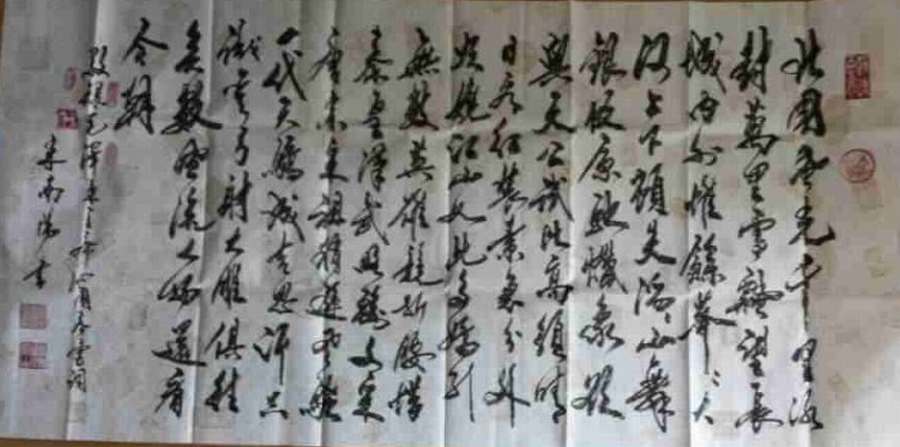 北國風光千里冰
封萬里雪飄望長
城內外惟餘莽々大
河上下頓失滔々山舞
銀蛇原馳蠟象欲
與天公試比高須晴
日看紅裝素裹分外
妖嬈江山如此多嬌引
無數英雄競折腰惜
秦皇漢武略輸文采
唐宗宋祖稍遜風騷
一代天驕成吉思汗只
識彎弓射大雕俱往
矣數風流人物還看
今朝
敬錄毛澤東主席沁園春雪詞
書